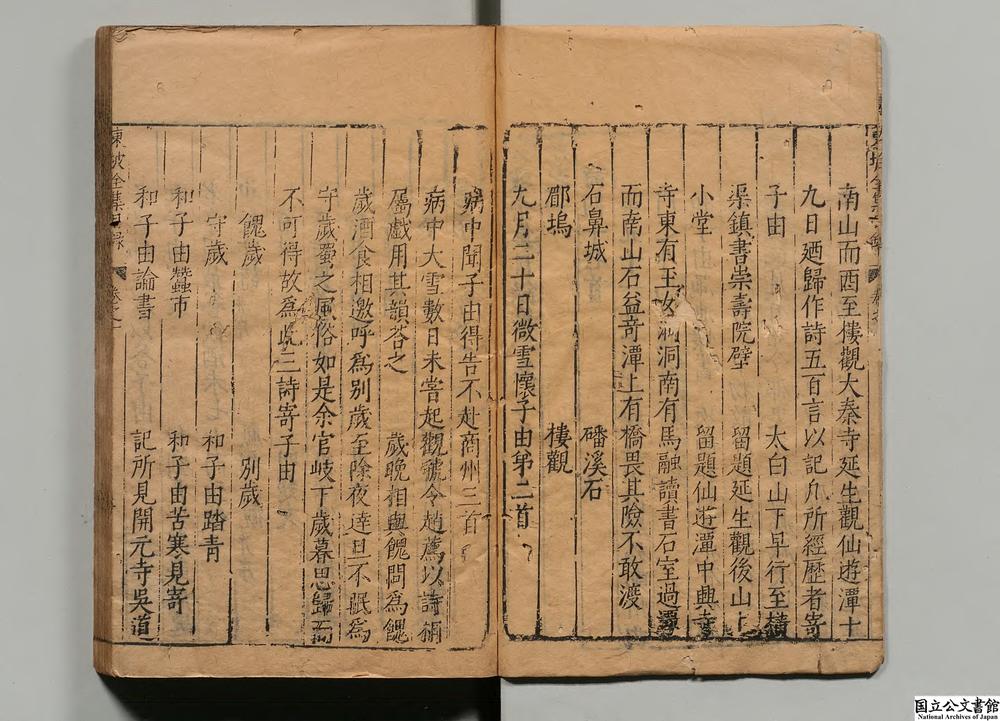 南山而西至樓觀大秦寺延生觀仙遊潭十
九日廻歸作詩五百言以記凢所經歷者寄
子由　太白山下早行至橫
渠鎮書崇壽院壁　留題延生觀後山上
小堂　留題仙遊潭中興寺
寺東有玉女洞洞南有馬融讀書石室過潭
而南山石益竒潭上有橋畏其險不敢渡
石鼻城　磻溪石
郿塢　樓觀
九月二十日微雪懷子由弟二首
病中聞子由得告不赴商州三首
病中大雪數日未嘗起觀虢令趙薦以詩相
屬戲用其韻荅之　歲晚相與餽問爲餽
歲酒食相邀呼爲別歲至除夜逹旦不眠爲
守歲蜀之風俗如是余官岐下歲暮思歸而
不可得故爲此三詩寄子由
餽歲　別歲
守歲　和子由踏青
和子由蠶市　和子由苦寒見寄
和子由論書　記所見開元寺吳道
東坡全集目録
国立公文書館
National Archives of Japan